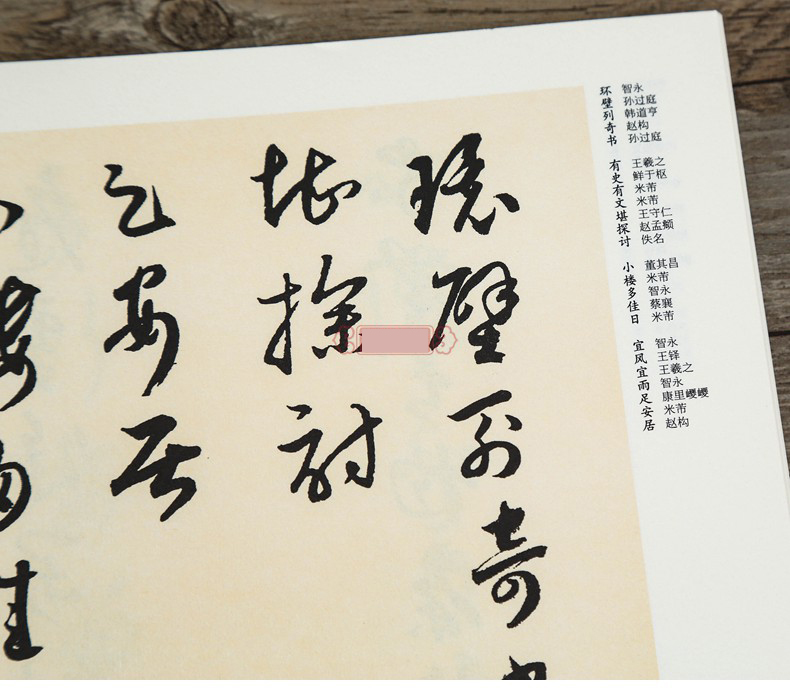 環壁列奇
堪探討
足安居
环壁列奇书
智永
孙过庭
韩道亨
赵构
孙过庭
有史有文堪探讨
王羲之
鲜于枢
米芾
米芾
王守仁
赵孟頫
佚名
小楼多佳日
董其昌
米芾
智永
蔡襄
米芾
宜风宜雨足安居
智永
王铎
王羲之
智永
康里巎巎
米芾
赵构